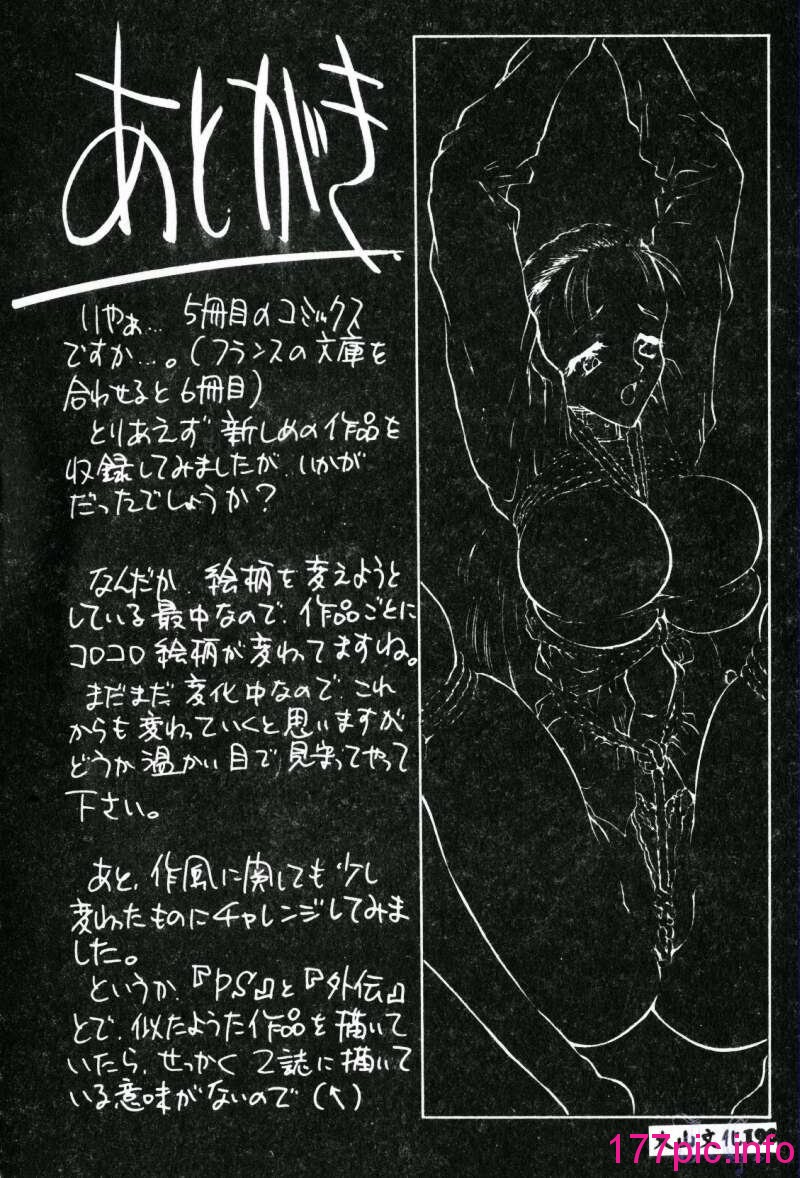 あとがき
いやぁ… 5冊目のコミックス
ですか…。(フランスの文庫を
合わせると6冊目)
とりあえず新しめの作品を
収録してみましたが、いかが
だったでしょうか?
なんだか、絵柄を変えようと
している最中なので、作品ごとに
コロコロ絵柄が変わってますね。
まだまだ変化中なので、これ
からも変わっていくと思いますが
どうか温かい目で見守ってやって
下さい。
あと、作風に関しても少し
変わったものにチャレンジしてみま
した。
というか、『PS』と『外伝』
とで、似たような作品を描いて
いたら、せっかく2誌に描いて
いる意味がないので(↖)
177pic.info